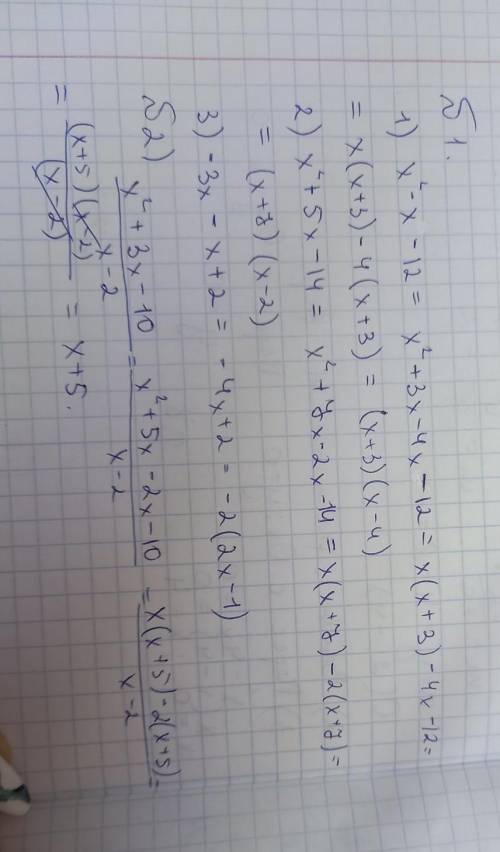 №1.
1) x² - x - 12 = x² + 3x - 4x - 12 = x(x+3) - 4x - 12 =
= x(x+3) - 4(x+3) = (x+3)(x-4)
2) x² + 5x - 14 = x² + 7x - 2x - 14 = x(x+7) - 2(x+7) =
= (x+7)(x-2)
3) -3x - x + 2 = -4x + 2 = -2(2x-1)
№2) (x² + 3x - 10)/(x - 2) = (x² + 5x - 2x - 10)/(x - 2) = (x(x+5) - 2(x+5))/(x - 2) =
= ((x+5)(x-2))/(x-2) = x+5.